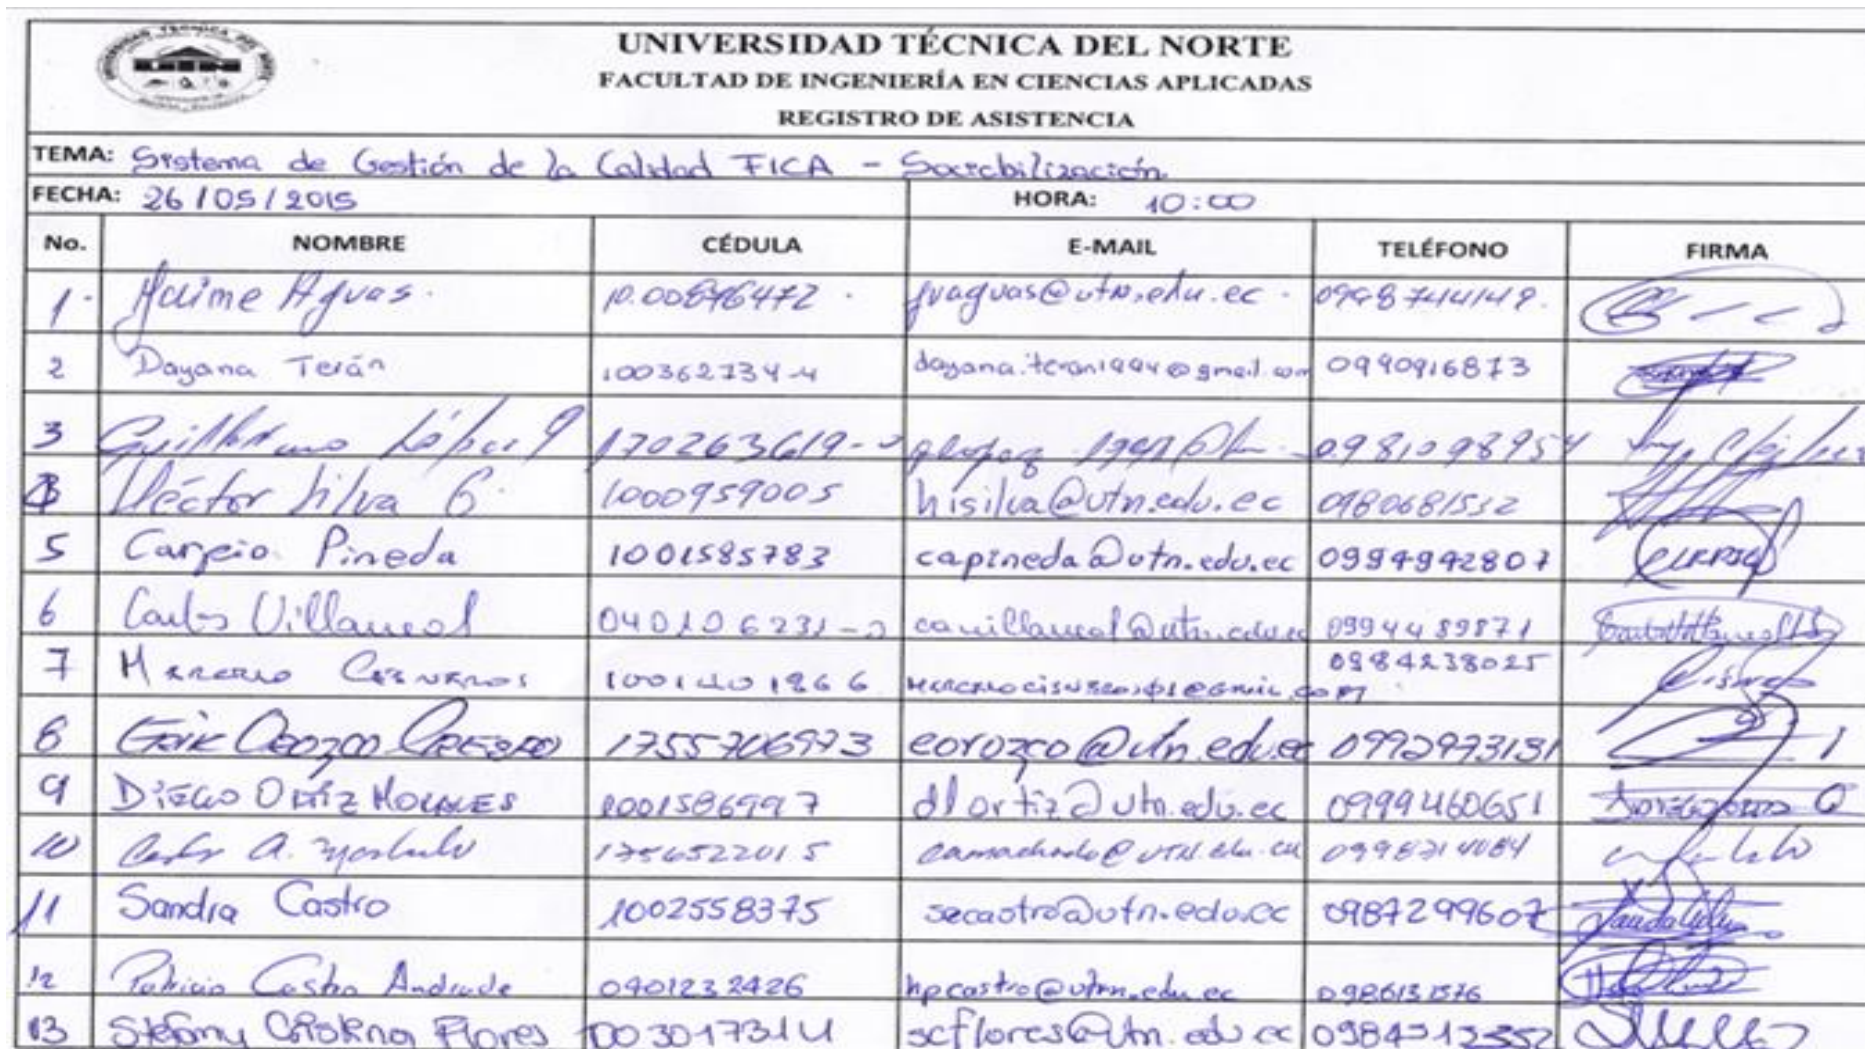 UNIVERSIDAD TÉCNICA DEL NORTE
FACULTAD DE INGENIERÍA EN CIENCIAS APLICADAS
REGISTRO DE ASISTENCIA
TEMA: Sistema de Gestión de la Calidad FICA - Sociabilización
FECHA: 26/05/2015 HORA: 10:00
No. NOMBRE CÉDULA E-MAIL TELÉFONO FIRMA
1. Jaime Aguas.
2 Dayana Terán 100362734-4 dayana.teran1994@gmail.com 0990916873
3 Guillermo López 170263619- 0981098954
Héctor Silva G. 1000959005 hisilva@utn.edu.ec 0980681532
5 Carpio Pineda 1001585783 capineda@utn.edu.ec 0994942807
6 Carlos Villarreal 040106231- 0994489871
7 Marcelo Cisneros 0984238025
8 Erik Orozco Crespo 1755706973 eorozco@utn.edu.ec 0992973131
9 DIEGO ORTÍZ MORALES 1001586997 dlortiz@utn.edu.ec 0999460651
10 A. 1756522015 camachado@utn.edu.ec
11 Sandra Castro 1002558375 secastro@utn.edu.ec 0987299607
12 Patricio Castro Andrade 0401232426 hpcastro@utn.edu.ec 0986131576
13 Stefany Carolina Flores scflores@utn.edu.ec 0984512352